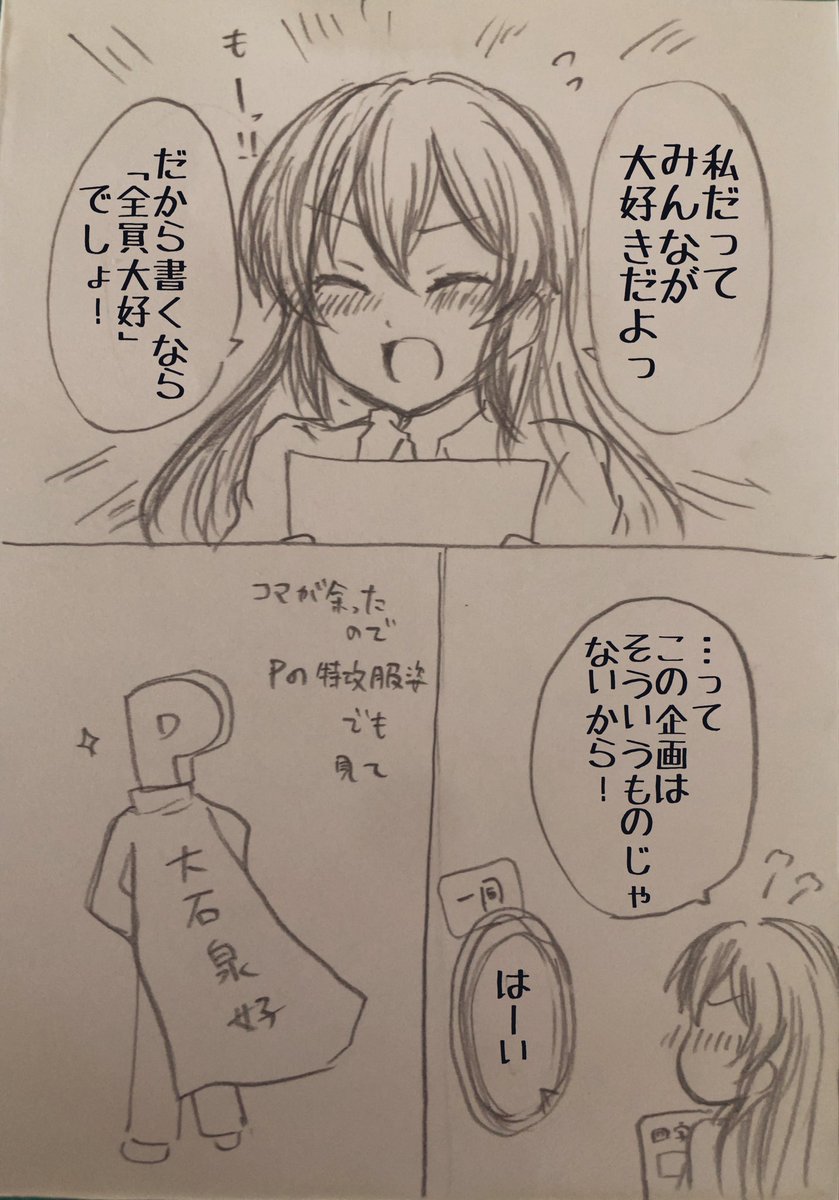 私だって
みんなが
大好きだよっ
もーっ!!
だから書くなら
「全員大好」
でしょ！
…って
この企画は
そういうものじゃ
ないから！
一同
はーい
四字
コマが余った
ので
Pの特攻服姿
でも
見て
P
大石泉好